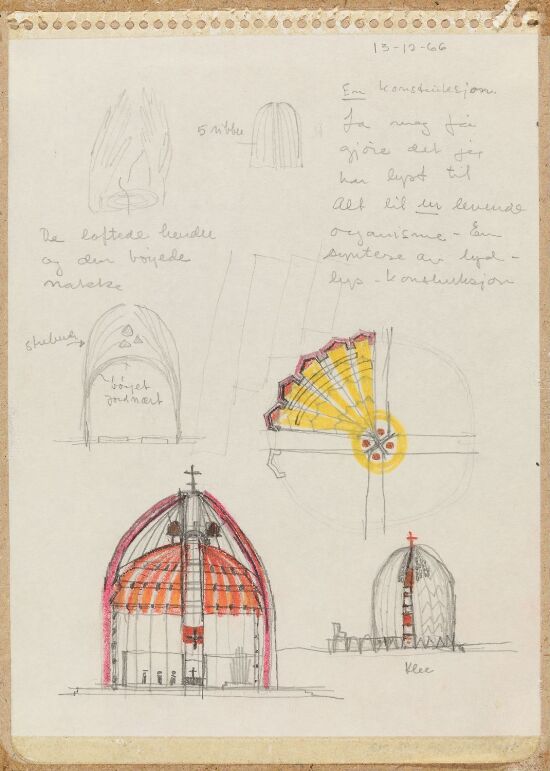 13-12-66
En konstruksjon.
La meg få
gjøre det jeg
har lyst til
Alt til en levende
organisme - En
syntese av lyd -
lys - konstruksjon
5 ribber
De løftede hender
og den bøyede
nakke
bøyet
jordnært
Klee